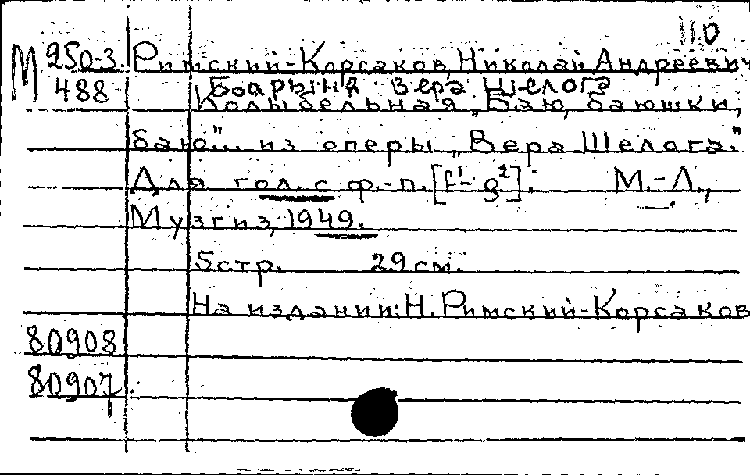 110
М 250-3 Римский-Корсаков Николай Андреевич
488 Боярыня Вера Шелога
Колыбельная "Баю, баюшки,
баю"... из оперы "Вера Шелога."
Для гол. с ф.-п. [f¹-g²]. М.-Л.,
Музгиз, 1949.
5 стр. 29 см.
На издании: Н. Римский-Корсаков
80908
80907